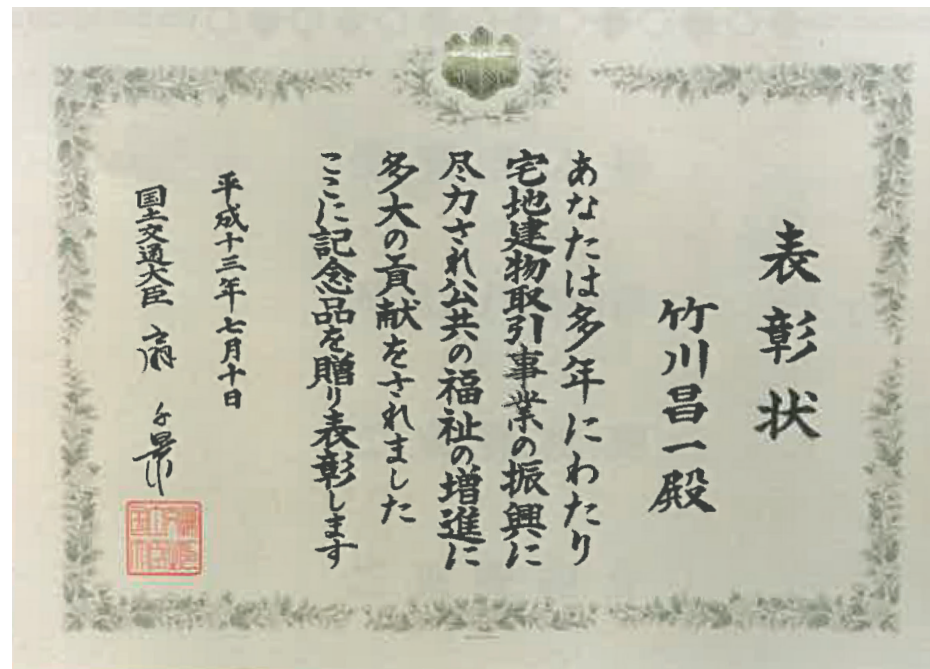 表彰状
竹川昌一殿
あなたは多年にわたり
宅地建物取引事業の振興に
尽力され公共の福祉の増進に
多大の貢献をされました
ここに記念品を贈り表彰します
平成十三年七月十日
国土交通大臣 扇 千景